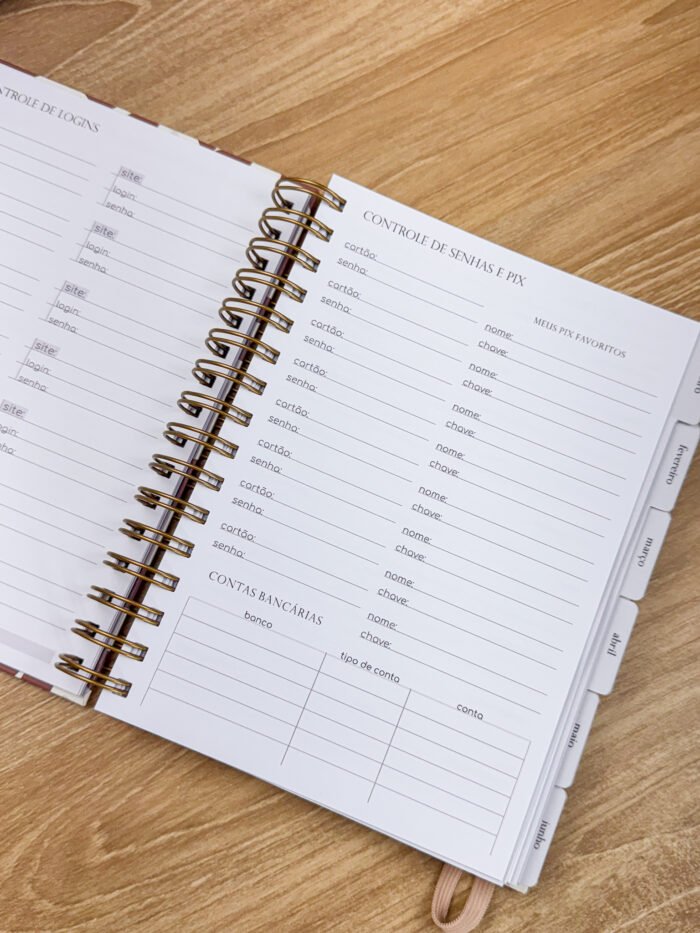 NTROLE DE LOGINS
site:
login:
senha:
site:
login:
senha:
site:
login:
senha:
site:
login:
senha:
site:
ogin:
nha:
CONTROLE DE SENHAS E PIX
cartão:
senha:
cartão:
senha:
cartão:
senha:
cartão:
senha:
cartão:
senha:
cartão:
senha:
cartão:
senha:
cartão:
senha:
MEUS PIX FAVORITOS
nome:
chave:
nome:
chave:
nome:
chave:
nome:
chave:
nome:
chave:
nome:
chave:
nome:
chave:
nome:
chave:
CONTAS BANCÁRIAS
banco
tipo de conta
conta
fevereiro
março
abril
maio
junho